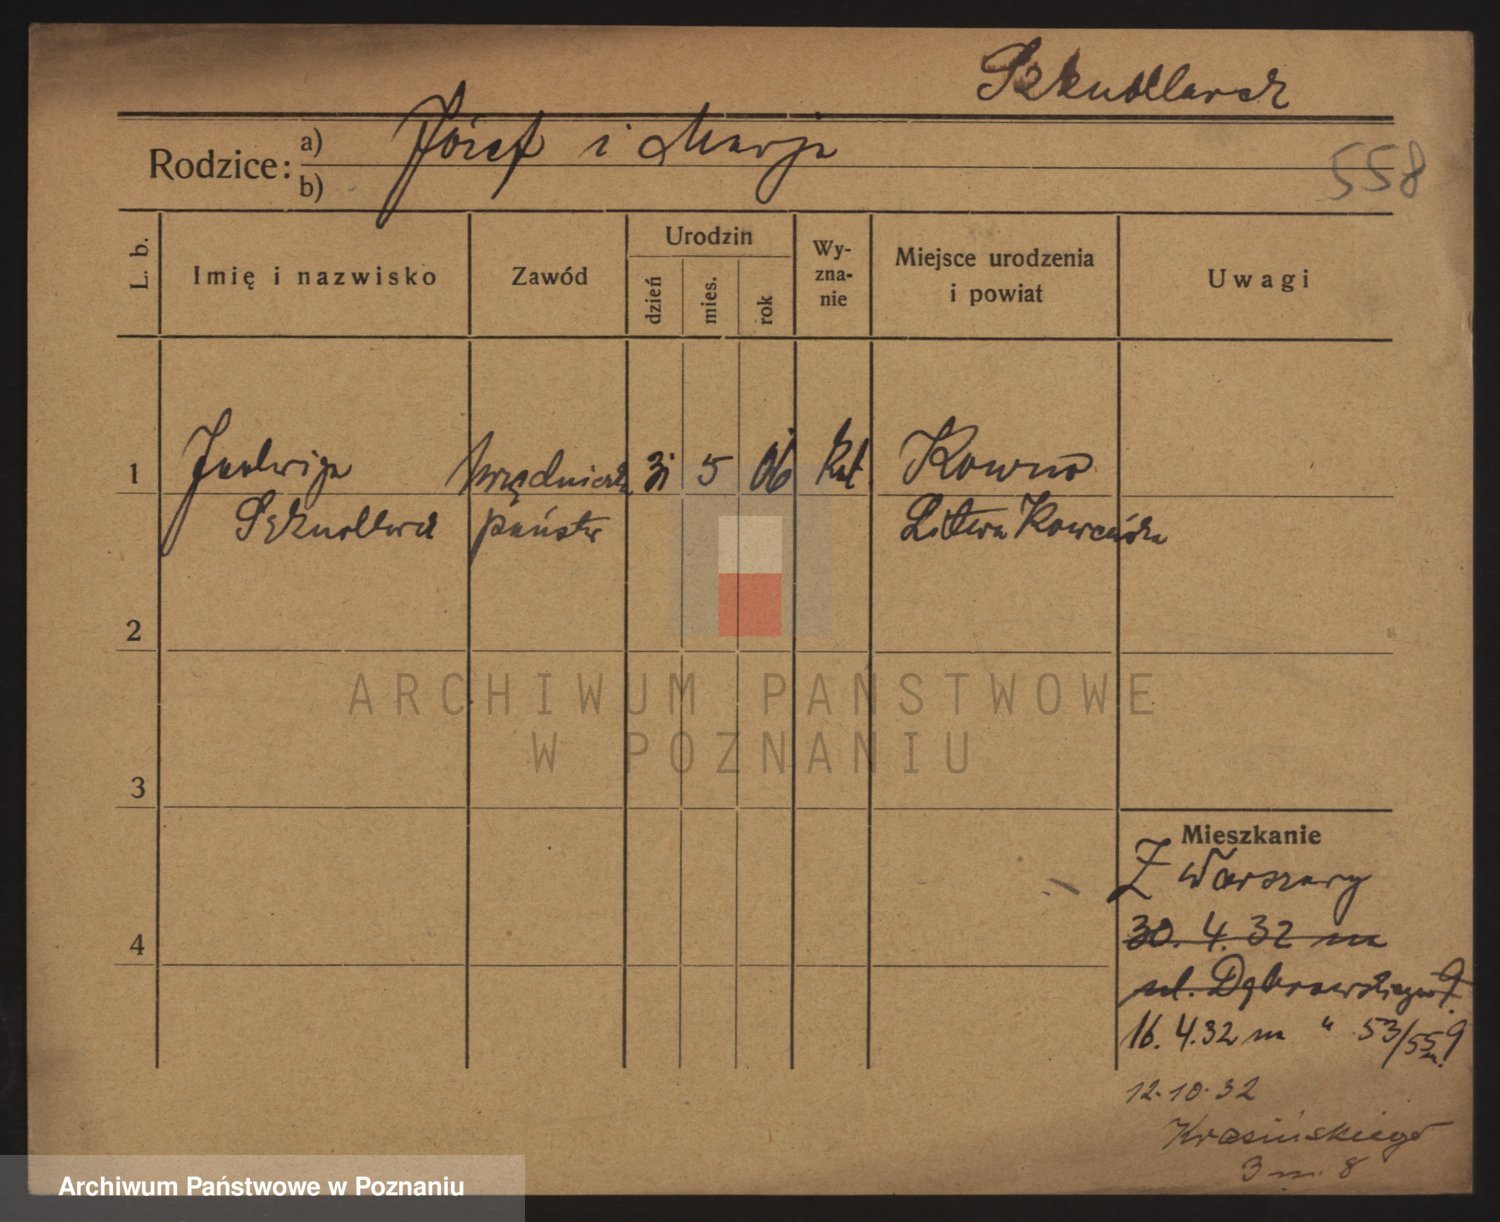 Szkudlarek
Rodzice:
a)
b)
Józef i Marja
558
L. b.
Imię i nazwisko
Zawód
Urodzin
dzień
mies.
rok
Wy-
zna-
nie
Miejsce urodzenia
i powiat
Uwagi
1
Jadwiga
urzędniczka
31
5
06
kat
Kowno
państw
Litwa Kowieńska
2
ARCHIWUM PAŃSTWOWE
W POZNANIU
3
Mieszkanie
Z Warszawy
4
30. 4. 32 na
ul. Dąbrowskiego 9.
16. 4. 32 na " 53/55 m. 9
12.10.32
Krasińskiego
3 m. 8
Archiwum Państwowe w Poznaniu